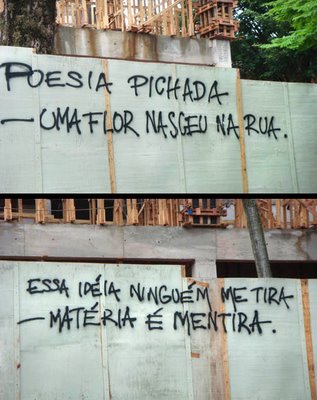 POESIA PICHADA
— UMA FLOR NASCEU NA RUA.
ESSA IDÉIA NINGUÉM ME TIRA
— MATÉRIA É MENTIRA.